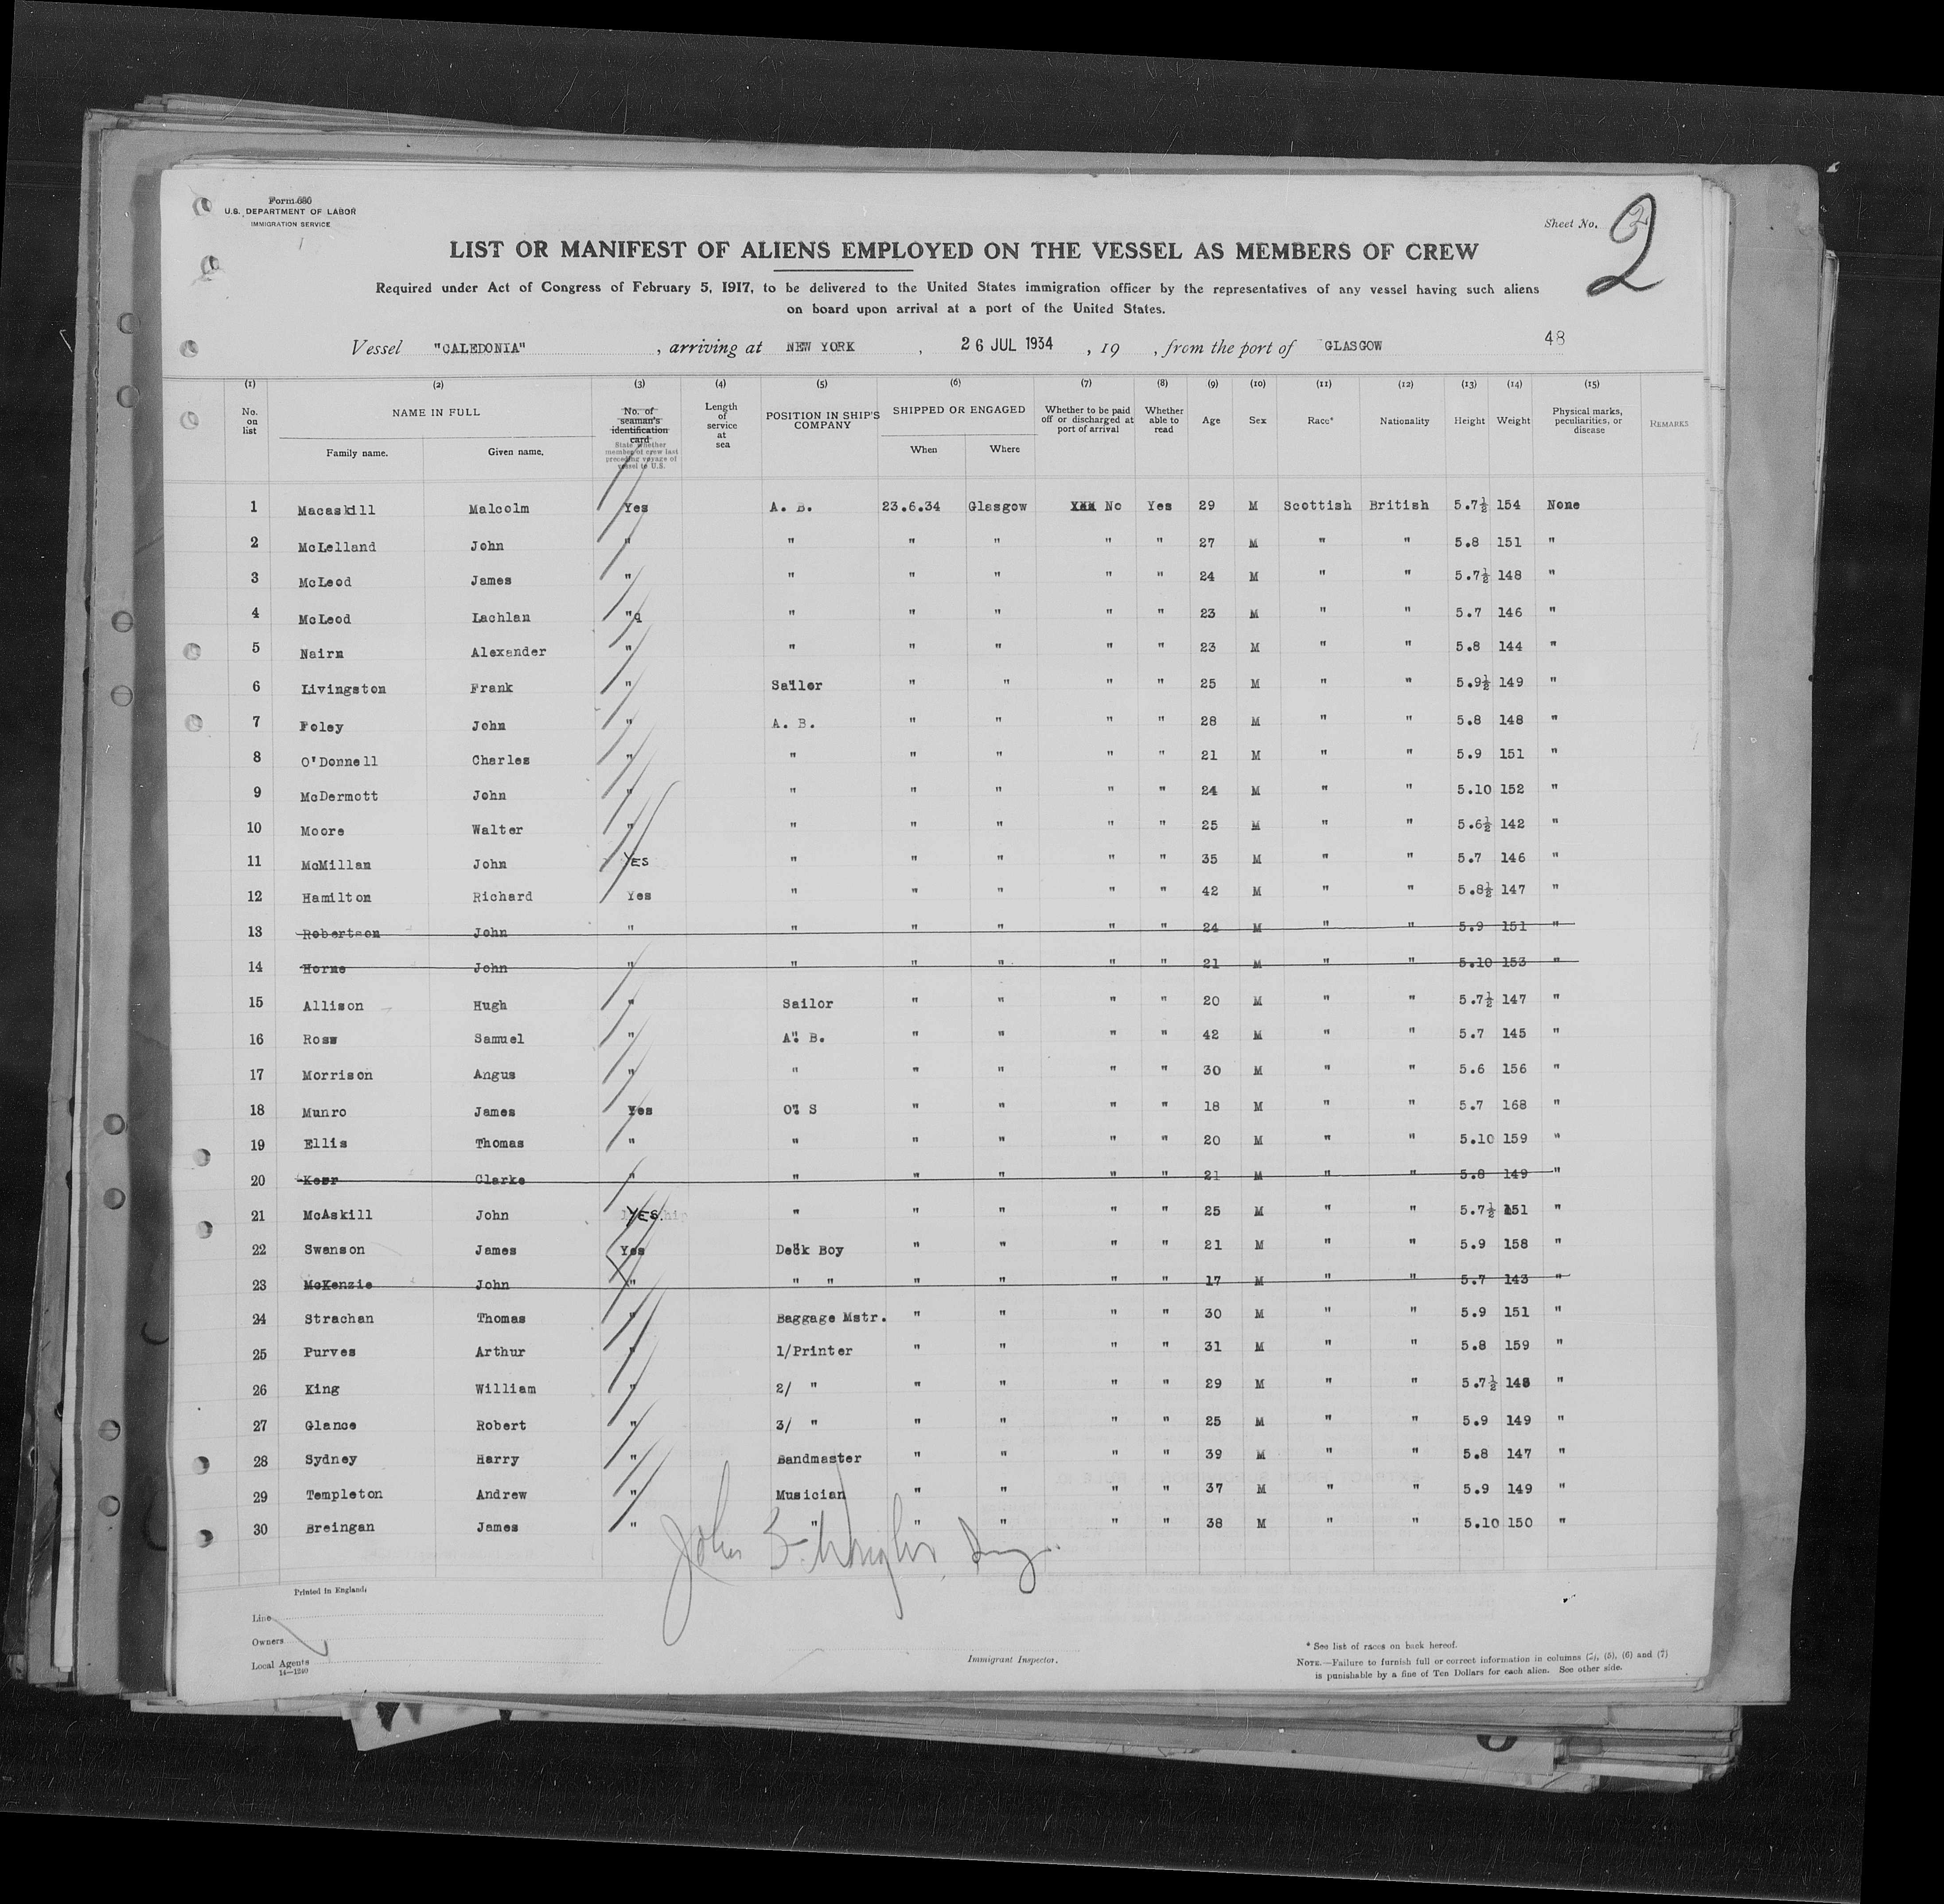 Form 680
U.S. DEPARTMENT OF LABOR
IMMIGRATION SERVICE
Sheet No. 2
LIST OR MANIFEST OF ALIENS EMPLOYED ON THE VESSEL AS MEMBERS OF CREW
Required under Act of Congress of February 5, 1917, to be delivered to the United States immigration officer by the representatives of any vessel having such aliens
on board upon arrival at a port of the United States.
Vessel "CALEDONIA", arriving at NEW YORK, 26 JUL 1934, 19 , from the port of GLASGOW 48
(1) (2) (3) (4) (5) (6) (7) (8) (9) (10) (11) (12) (13) (14) (15)
No. on list NAME IN FULL Family name. Given name. No. of seaman's identification card State whether member of crew last preceding voyage of vessel to U.S. Length of service at sea POSITION IN SHIP'S COMPANY SHIPPED OR ENGAGED When Where Whether to be paid off or discharged at port of arrival Whether able to read Age Sex Race* Nationality Height Weight Physical marks, peculiarities, or disease REMARKS
1 Macaskill Malcolm Yes A. B. 23.6.34 Glasgow XXX No Yes 29 M Scottish British 5.7½ 154 None
2 McLelland John " " " " " " 27 M " " 5.8 151 "
3 McLeod James " " " " " " 24 M " " 5.7½ 148 "
4 McLeod Lachlan "q " " " " " 23 M " " 5.7 146 "
5 Nairn Alexander " " " " " " 23 M " " 5.8 144 "
6 Livingston Frank " Sailor " " " " 25 M " " 5.9½ 149 "
7 Foley John " A. B. " " " " 28 M " " 5.8 148 "
8 O'Donnell Charles " " " " " " 21 M " " 5.9 151 "
9 McDermott John " " " " " " 24 M " " 5.10 152 "
10 Moore Walter " " " " " " 25 M " " 5.6½ 142 "
11 McMillan John YES " " " " " 35 M " " 5.7 146 "
12 Hamilton Richard Yes " " " " " 42 M " " 5.8½ 147 "
13 Robertson John " " " " " " 24 M " " 5.9 151 "
14 Horne John " " " " " " 21 M " " 5.10 153 "
15 Allison Hugh " Sailor " " " " 20 M " " 5.7½ 147 "
16 Ross Samuel " A. B. " " " " 42 M " " 5.7 145 "
17 Morrison Angus " " " " " " 30 M " " 5.6 156 "
18 Munro James Yes O. S " " " " 18 M " " 5.7 168 "
19 Ellis Thomas " " " " " " 20 M " " 5.10 159 "
20 Kerr Clarke " " " " " " 21 M " " 5.8 149 "
21 McAskill John YES. " " " " " 25 M " " 5.7½ 151 "
22 Swanson James Yes Deck Boy " " " " 21 M " " 5.9 158 "
23 McKenzie John " " " " " " " 17 M " " 5.7 143 "
24 Strachan Thomas " Baggage Mstr. " " " " 30 M " " 5.9 151 "
25 Purves Arthur " 1/Printer " " " " 31 M " " 5.8 159 "
26 King William " 2/ " " " " " 29 M " " 5.7½ 148 "
27 Glance Robert " 3/ " " " " " 25 M " " 5.9 149 "
28 Sydney Harry " Bandmaster " " " " 39 M " " 5.8 147 "
29 Templeton Andrew " Musician " " " " 37 M " " 5.9 149 "
30 Breingan James " " " " " " 38 M " " 5.10 150 "
Printed in England.
Line
Owners
Local Agents
14—1240
Immigrant Inspector.
* See list of races on back hereof.
NOTE.—Failure to furnish full or correct information in columns (2), (5), (6) and (7)
is punishable by a fine of Ten Dollars for each alien. See other side.